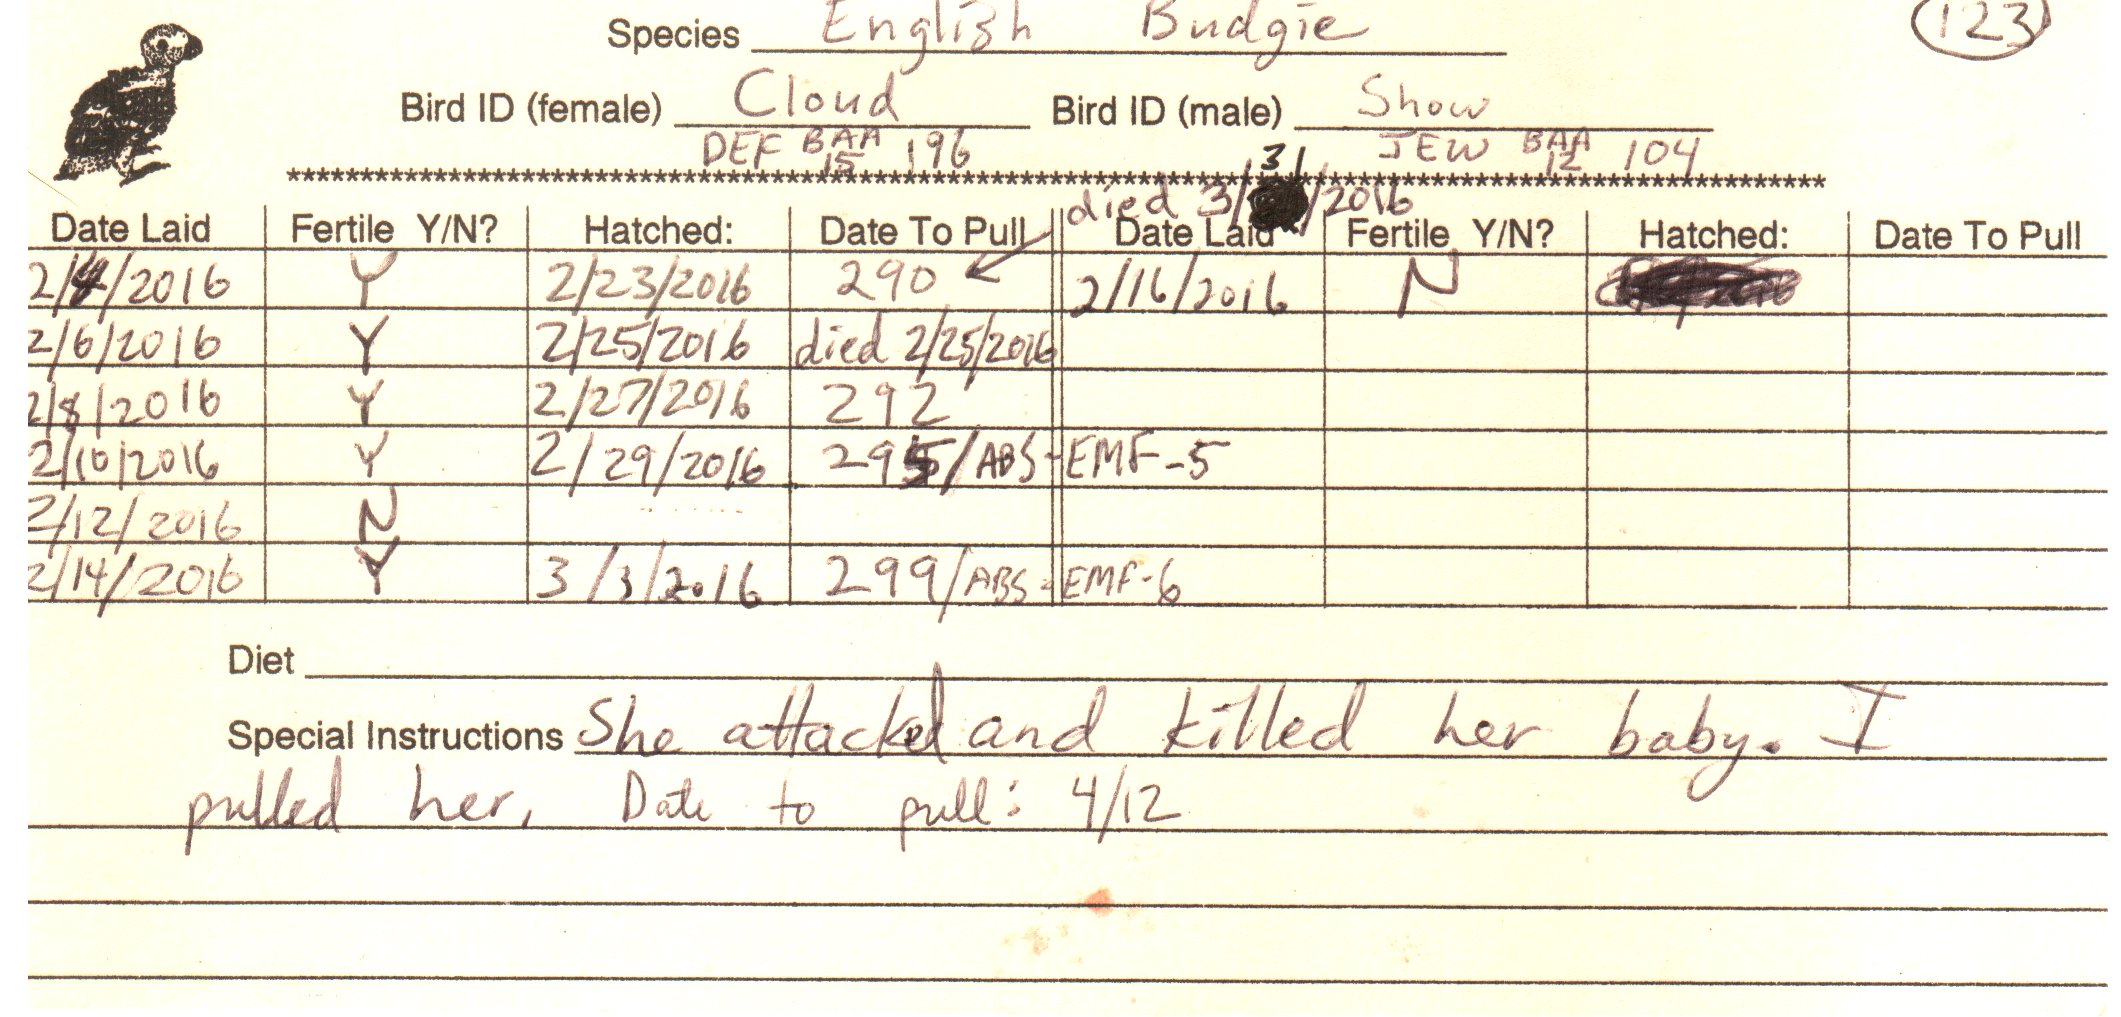 Species English Budgie 123
Bird ID (female) Cloud Bird ID (male) Show
DEF BAA 15 196 JEW BAA 12 104
****************************************************************************************************
died 3/31/2016
Date Laid Fertile Y/N? Hatched: Date To Pull Date Laid Fertile Y/N? Hatched: Date To Pull
2/4/2016 Y 2/23/2016 290 2/16/2016 N
2/6/2016 Y 2/25/2016 died 2/25/2016
2/8/2016 Y 2/27/2016 292
2/10/2016 Y 2/29/2016 295/ABS-EMF-5
2/12/2016 N
2/14/2016 Y 3/3/2016 299/ABS-EMF-6
Diet
Special Instructions She attacked and killed her baby. I
pulled her, Date to pull: 4/12